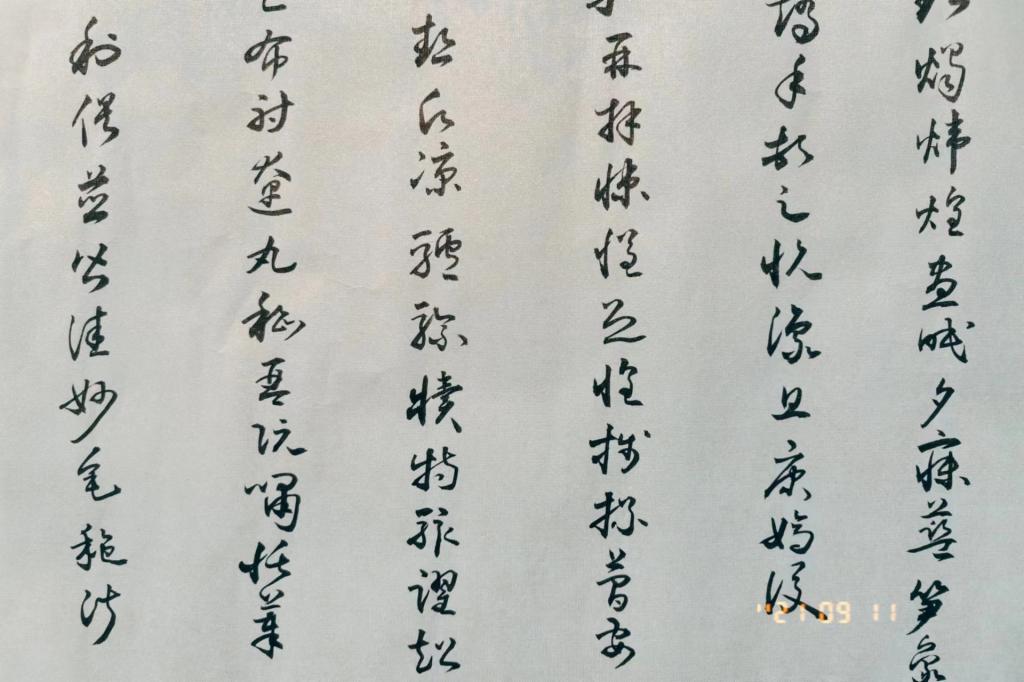 銀燭煒煌晝眠夕寐藍筍象
矯手頓足悅豫且康嫡後
再拜悚懼恐惶牋牒簡要
熱願涼驢騾犢特駭躍超
布射遼丸嵇琴阮嘯恬筆
利俗並皆佳妙毛施淑
'21 09 11